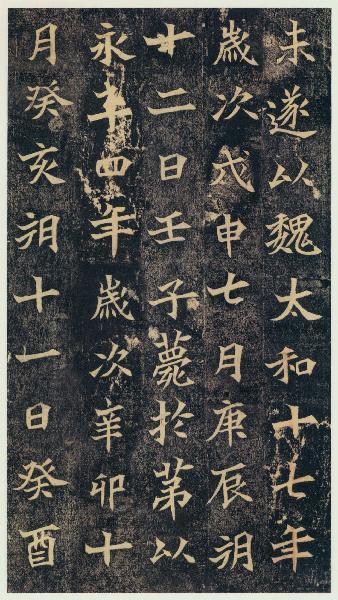 未遂以魏太和十七年
歲次戊申七月庚辰朔
廿二日壬子薨於第以
永平四年歲次辛卯十
月癸亥朔十一日癸酉